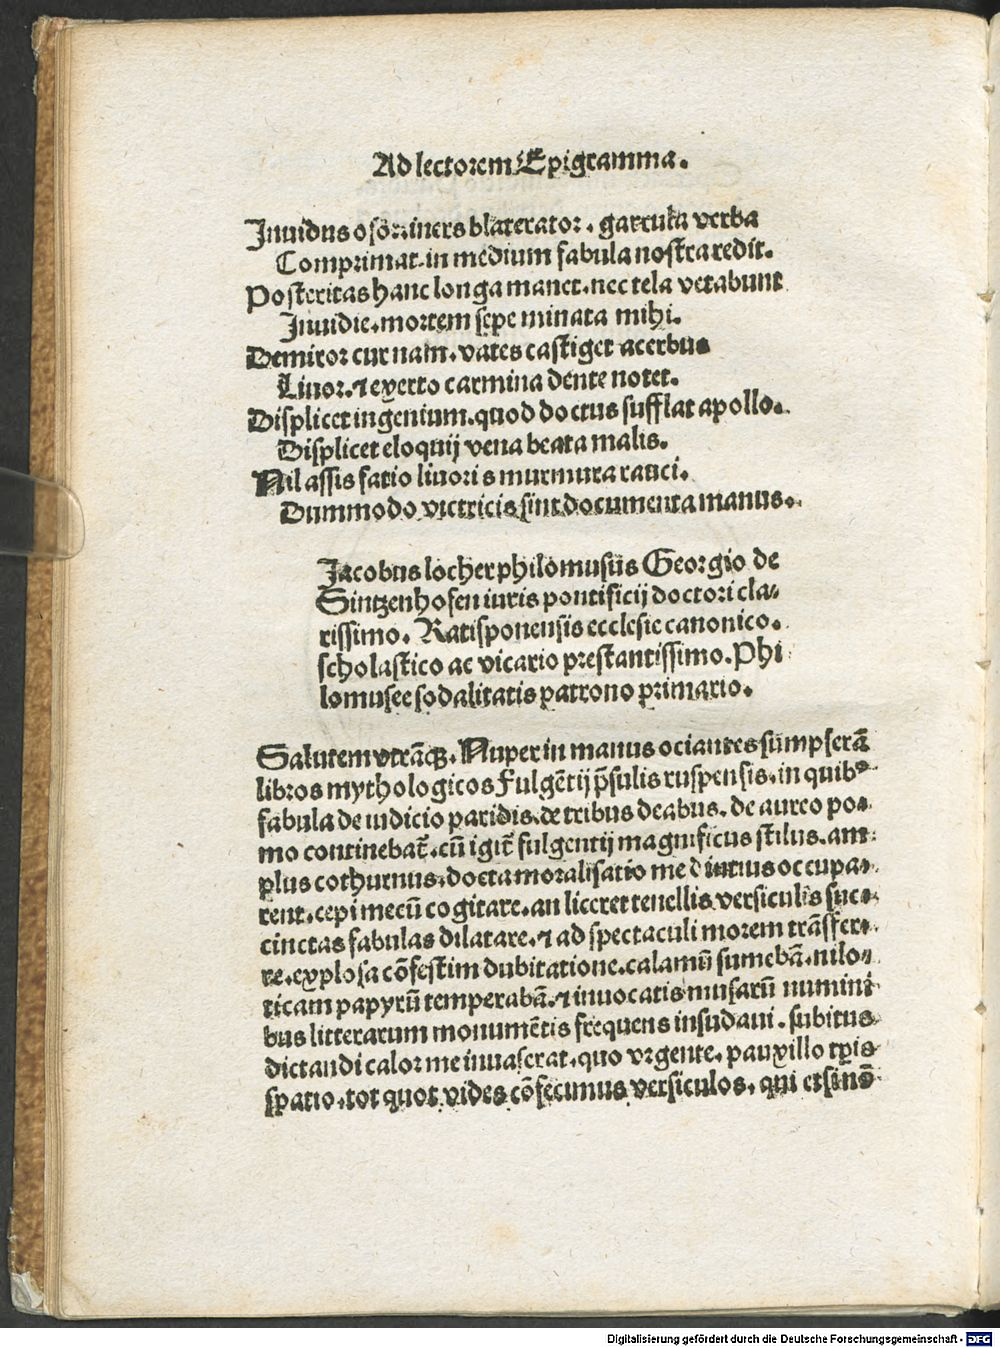 Ad lectorem Epigramma.
Inuidus osor: iners blaterator. garrula verba
Comprimat. in medium fabula nostra redit.
Posteritas hanc longa manet. nec tela vetabunt
Inuidie. mortem sepe minata mihi.
Demiror cur nam. vates castiget acerbus
Liuor. ⁊ exerto carmina dente notet.
Displicet ingenium. quod doctus sufflat apollo.
Displicet eloquij vena beata malis.
Nil assis facio liuoris murmura rauci.
Dummodo victricis sint documenta manus.
Jacobus locher philomusus Georgio de
Sintzenhofen iuris pontificij doctori cla-
rissimo. Ratisponensis ecclesie canonico.
scholastico ac vicario prestantissimo. Phi
lomusee sodalitatis patrono primario.
Salutem vtrāqꝫ. Nuper in manus ociantes sumpserā
libros mythologicos Fulgētij p̄sulis ruspensis. in quibꝰ
fabula de iudicio paridis. de tribus deabus. de aureo po-
mo continebat̄. cū igit̄ fulgentij magnificus stilus. am-
plus cothurnus. docta moralisatio me diutius occupa-
rent. cepi mecū cogitare. an liceret tenellis versiculis suc-
cinctas fabulas dilatare. ⁊ ad spectaculi morem trāsfer-
re. explosa cōfestim dubitatione. calamū sumebā. nilo-
ticam papyrū temperabā. ⁊ inuocatis musarū numini
bus litterarum monumētis frequens insudaui. subitus
dictandi calor me inuaserat. quo vrgente. pauxillo tꝑis
spatio. tot quot vides cōfecimus versiculos. qui etsi nō
Digitalisierung gefördert durch die Deutsche Forschungsgemeinschaft - DFG